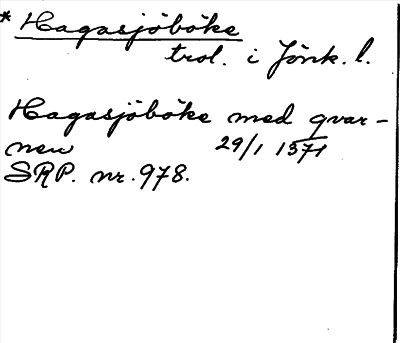 * Hagasjöböke
trol. i Jönk. l.
Hagasjöböke med qvar-
nen 29/1 1571
SRP. nr. 978.